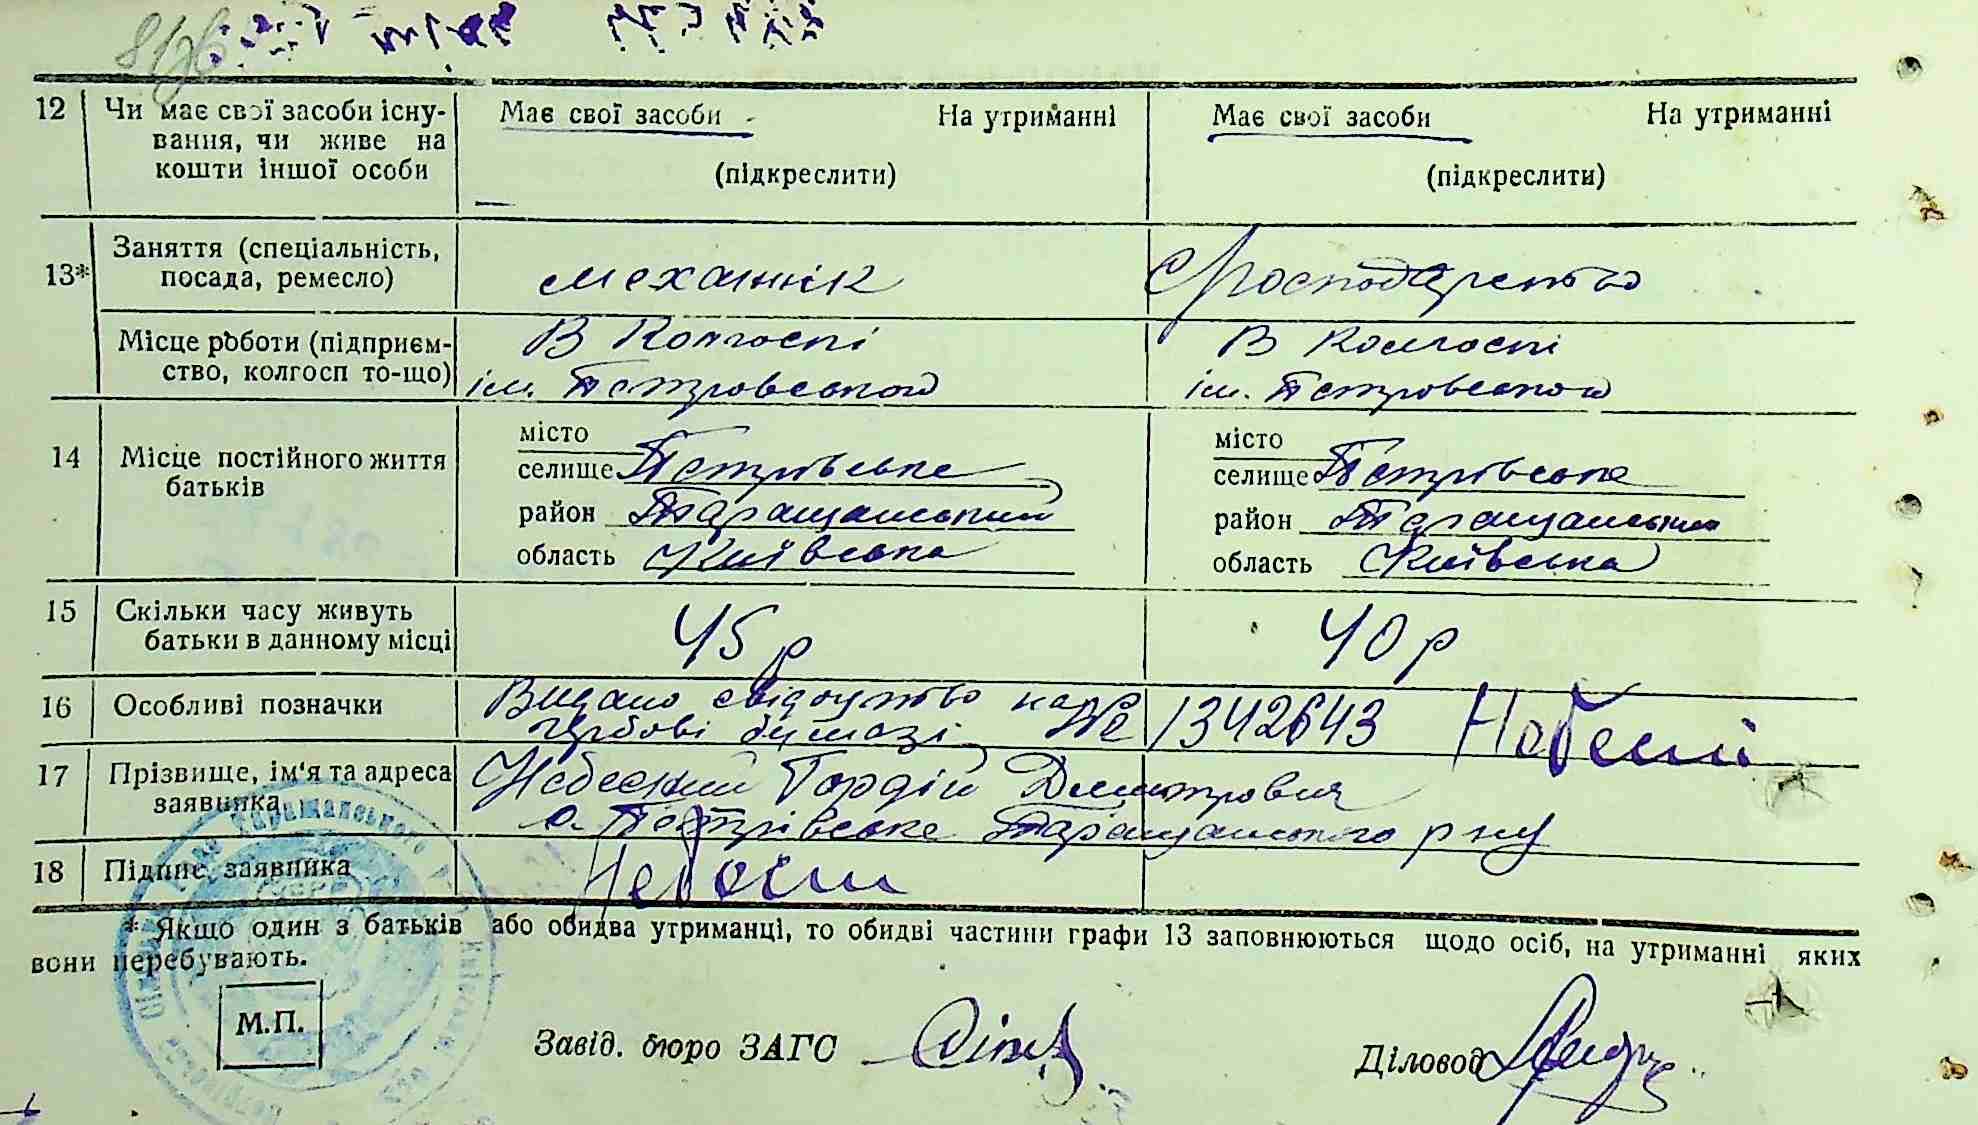 8126
12 Чи має свої засоби існу- Має свої засоби На утриманні Має свої засоби На утриманні
вання, чи живе на
кошти іншої особи (підкреслити) (підкреслити)
13* Заняття (спеціальність,
посада, ремесло) механик Господарство
Місце роботи (підприєм- В Колгоспі В Колгоспі
ство, колгосп то-що) ім. Петровського ім. Петровського
14 Місце постійного життя місто місто
батьків селище Петрівське селище Петрівське
район Таращанський район Таращанський
область Київська область Київська
15 Скільки часу живуть
батьки в данному місці 45 р 40 р
16 Особливі позначки Видано свідоцтво на
гербові бумазі № 1342643 Небесний
17 Прізвище, ім'я та адреса Небесний Гордій Дмитрович
заявника с. Петрівське Таращанського р-ну
18 Підпис заявника Небесни
* Якщо один з батьків або обидва утриманці, то обидві частини графи 13 заповнюються щодо осіб, на утриманні яких
вони перебувають.
М.П.
Завід. бюро ЗАГС Діловод
Таращанського